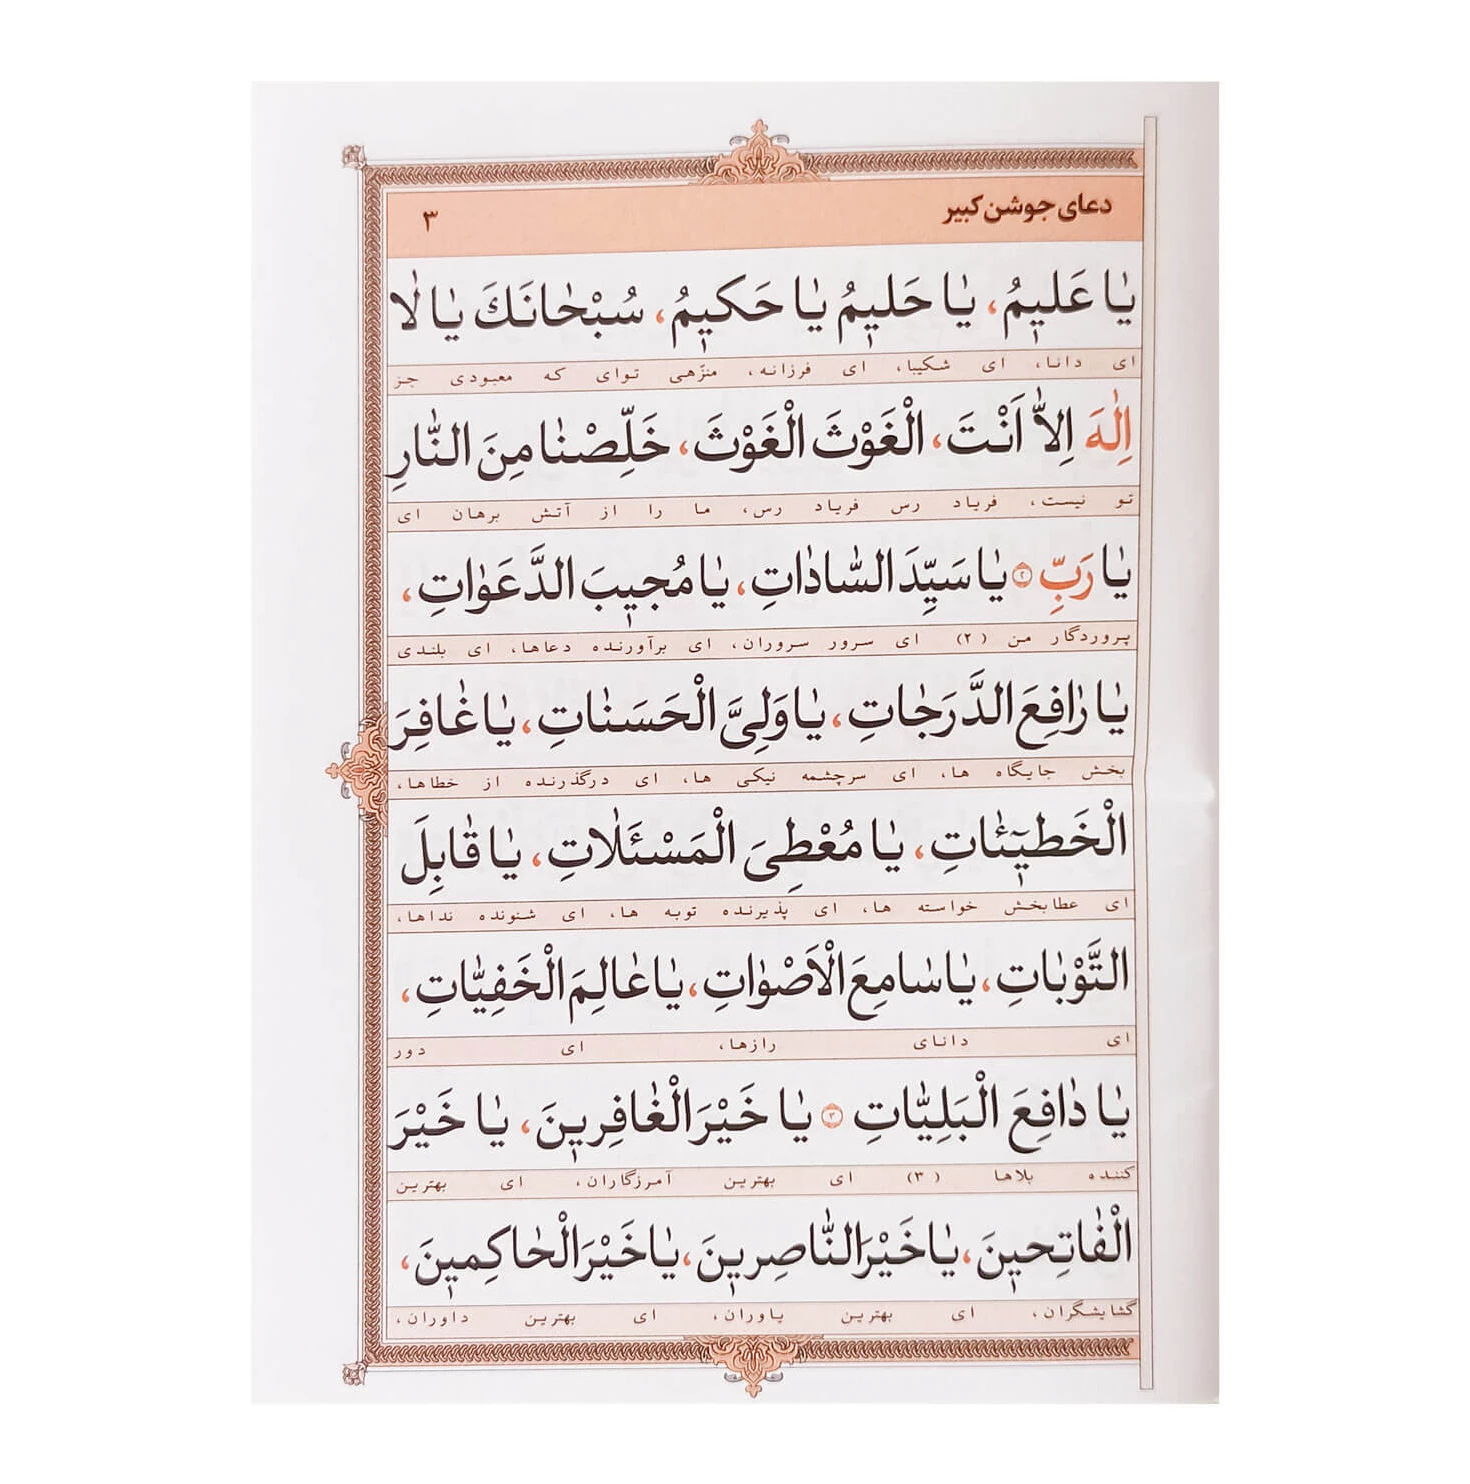 دعای جوشن کبیر ۳
یٰا عَلیٖمُ، یٰا حَلیٖمُ یٰا حَکیٖمُ، سُبْحٰانَكَ یٰا لٰا
ای دانا، ای شکیبا، ای فرزانه، منزّهی توای که معبودی جز
اِلٰهَ اِلاّٰ اَنْتَ، الْغَوْثَ الْغَوْثَ، خَلِّصْنٰا مِنَ النّٰارِ
تو نیست، فریاد رس فریاد رس، ما را از آتش برهان ای
یٰا رَبِّ ۲ یٰا سَیِّدَ السّٰادٰاتِ، یٰا مُجیٖبَ الدَّعَوٰاتِ،
پروردگار من (۲) ای سرور سروران، ای برآورنده دعاها، ای بلندی
یٰا رٰافِعَ الدَّرَجٰاتِ، یٰا وَلِیَّ الْحَسَنٰاتِ، یٰا غٰافِرَ
بخش جایگاه ها، ای سرچشمه نیکی ها، ای درگذرنده از خطاها،
الْخَطیٖٓئٰاتِ، یٰا مُعْطِیَ الْمَسْئَلٰاتِ، یٰا قٰابِلَ
ای عطابخش خواسته ها، ای پذیرنده توبه ها، ای شنونده نداها،
التَّوْبٰاتِ، یٰا سٰامِعَ الْاَصْوٰاتِ، یٰا عٰالِمَ الْخَفِیّٰاتِ،
ای دانای رازها، ای دور
یٰا دٰافِعَ الْبَلِیّٰاتِ ۳ یٰا خَیْرَ الْغٰافِریٖنَ، یٰا خَیْرَ
کننده بلاها (۳) ای بهترین آمرزگاران، ای بهترین
الْفٰاتِحیٖنَ، یٰا خَیْرَ النّٰاصِریٖنَ، یٰا خَیْرَ الْحٰاکِمیٖنَ،
گشایشگران، ای بهترین یاوران، ای بهترین داوران،